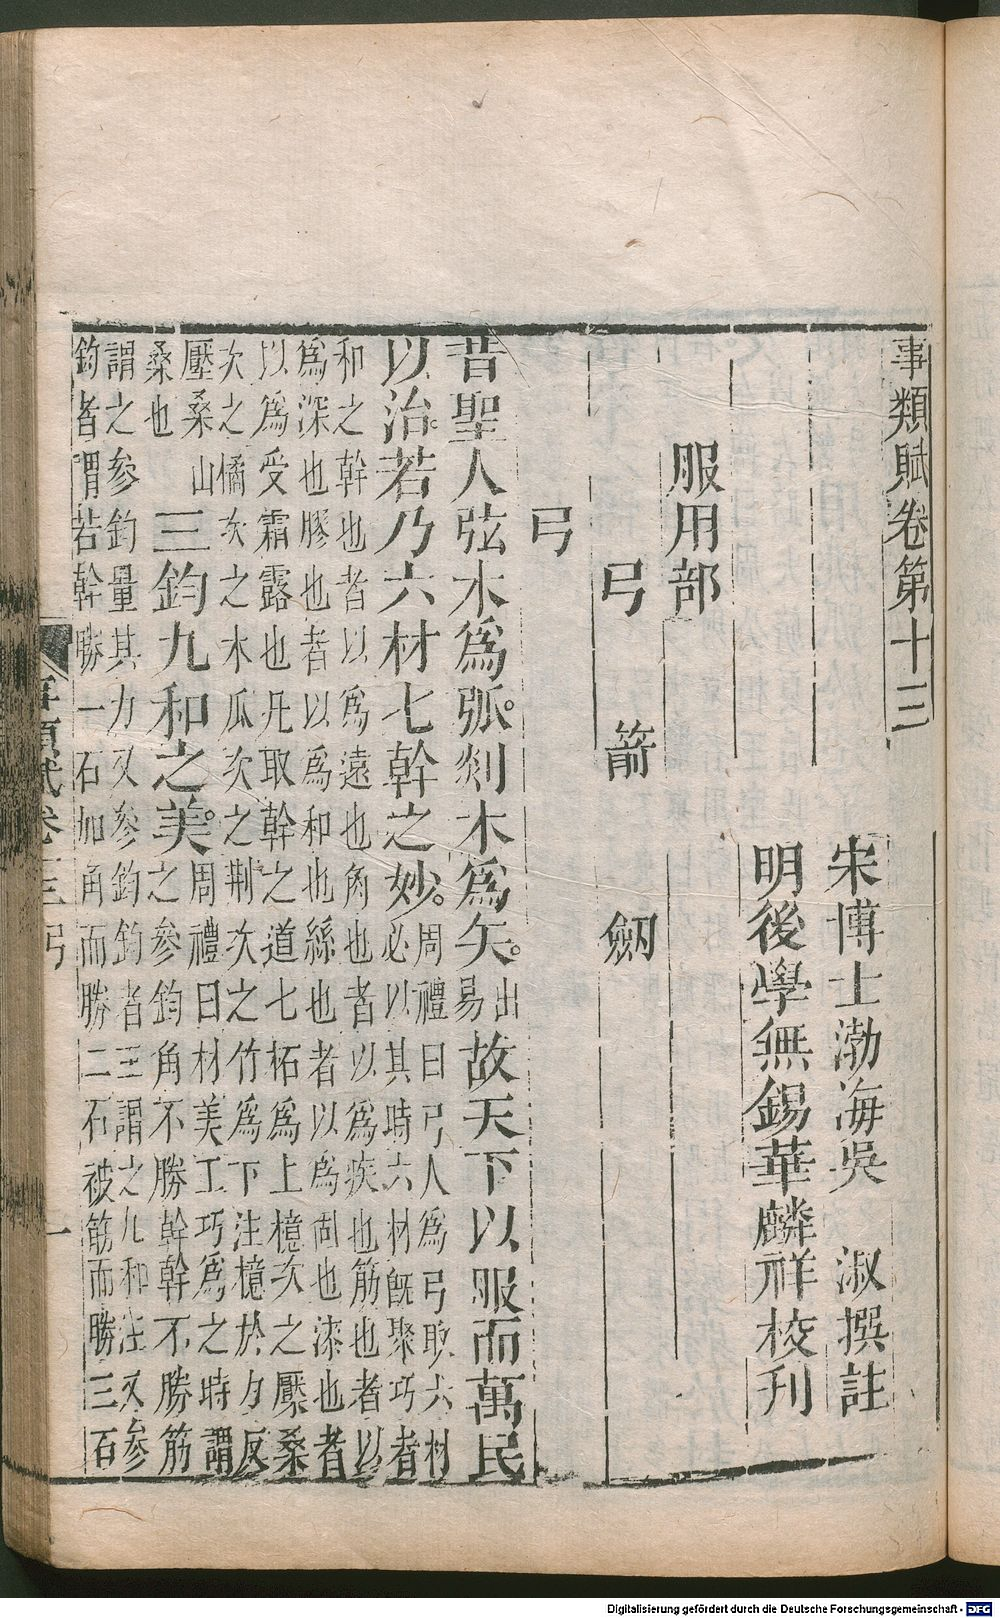 事類賦卷第十三
宋博士渤海吳 淑撰註
明後學無錫華麟祥校刊
服用部
弓 箭 劒
弓
昔聖人弦木爲弧。剡木爲矢。出易故天下以服而萬民
以治。若乃六材七幹之妙。周禮曰弓人爲弓取六材
必以其時六材旣聚巧者
和之幹也者以爲遠也角也者以爲疾也筋也者以
爲深也膠也者以爲和也絲也者以爲固也漆也者
以爲受霜露也凡取幹之道七柘爲上檍次之壓桑
次之橘次之木瓜次之荆次之竹爲下注檍於力反謂
壓桑山
桑也
三鈞九和之美。周禮曰材美工巧爲之時謂
之參鈞角不勝幹幹不勝筋
謂之參鈞量其力又參鈞鈞者三謂之九和注又參
鈞者謂若幹勝一石加角而勝二石被筋而勝三石
事類賦卷十三 弓 一
Digitalisierung gefördert durch die Deutsche Forschungsgemeinschaft - DFG